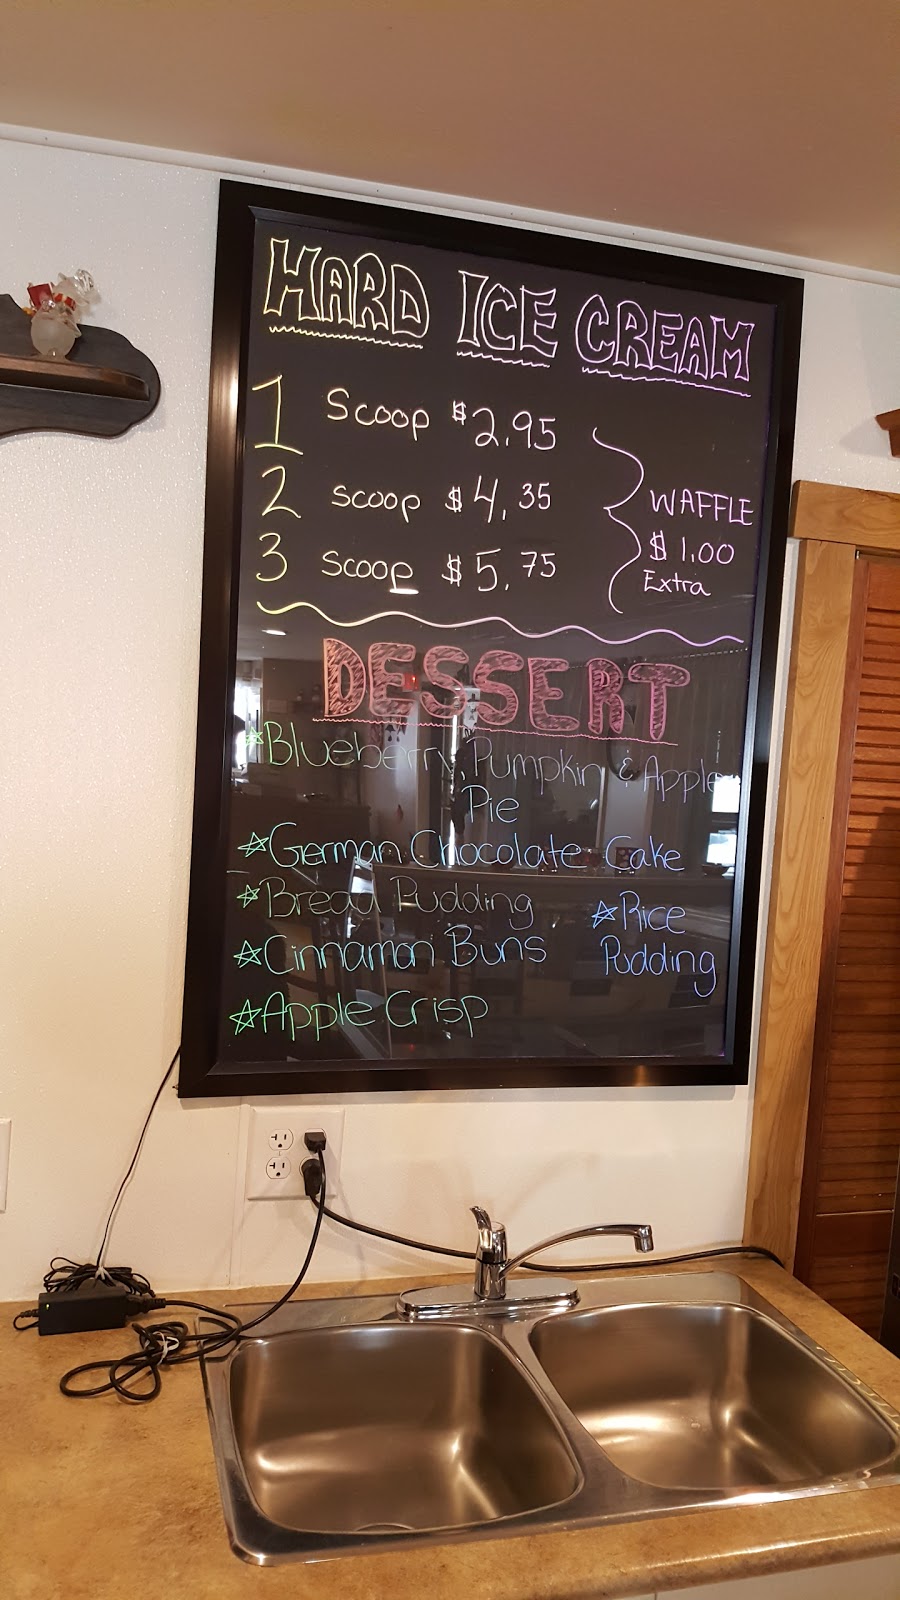 HARD ICE CREAM
1 Scoop $2.95
2 scoop $4.35
3 Scoop $5.75
WAFFLE
$1.00
Extra
DESSERT
Blueberry, Pumpkin & Apple
Pie
German Chocolate Cake
Bread Pudding
Cinnamon Buns
Apple Crisp
Rice
Pudding